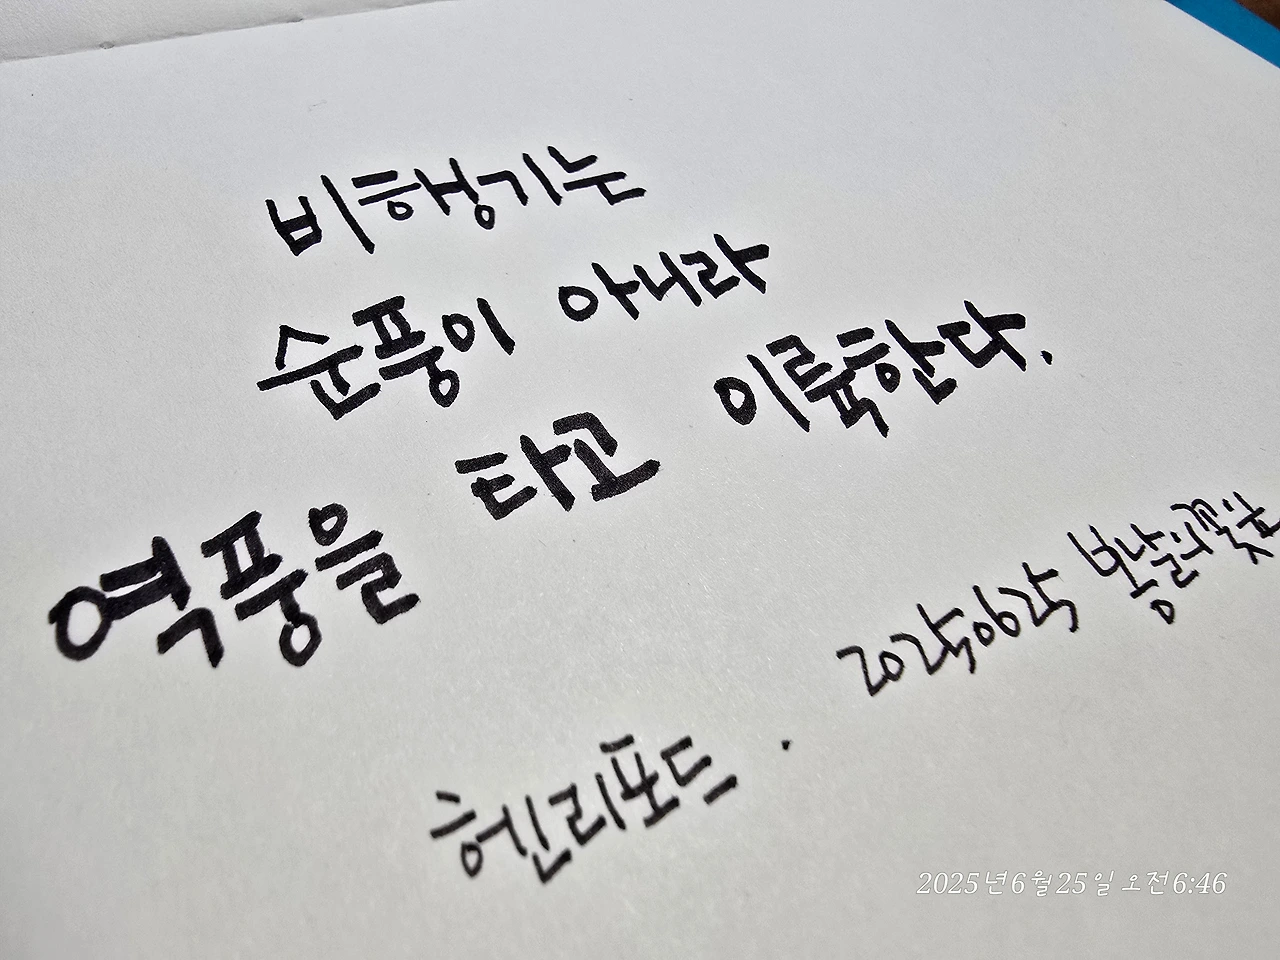 비행기는
순풍이 아니라
역풍을 타고 이륙한다.
20250625
헨리포드.
2025년6월25일 오전6:46